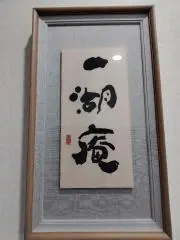 一湖庵